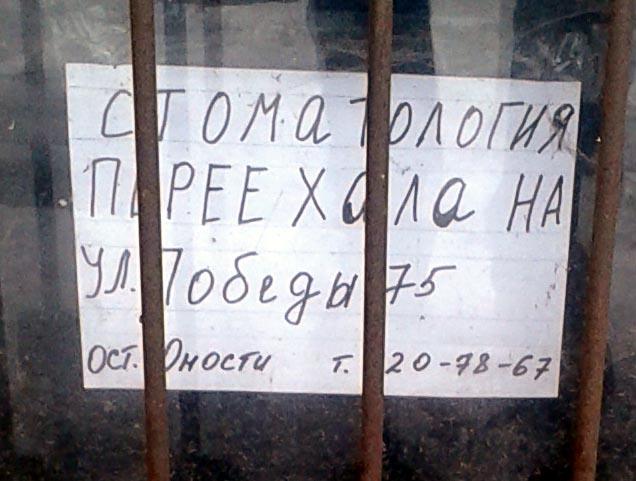 СТОМАТОЛОГИЯ
ПЕРЕЕХАЛА НА
УЛ. Победы 75
ОСТ. Юности т. 20-78-67